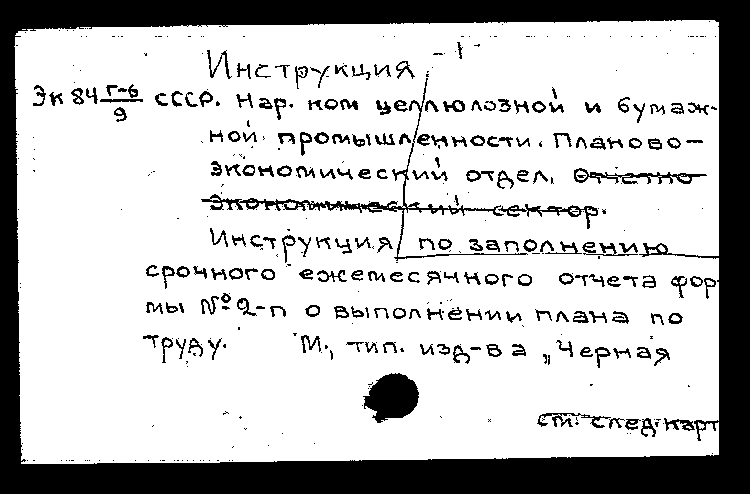 Инструкция - 1 -
Эк 84 Г-6/9 СССР. Нар. ком целлюлозной и бумаж-
ной промышленности. Планово-
экономический отдел. Отчетно
экономический сектор.
Инструкция по заполнению
срочного ежемесячного отчета фор
мы № 2-п о выполнении плана по
труду. М., тип. изд-ва „Черная
см. след. карт